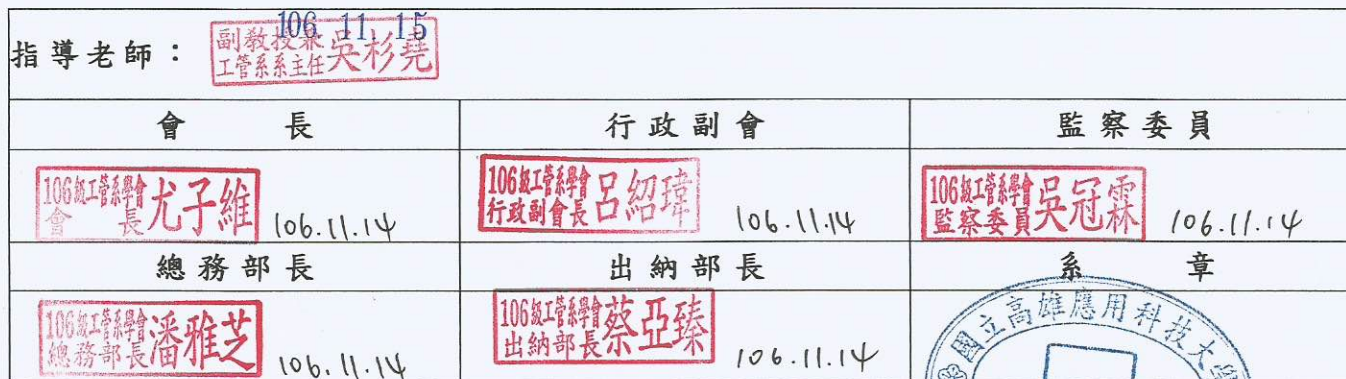 106. 11. 15
指導老師：
副教授兼
工管系系主任 吳杉堯
會 長
行政副會
監察委員
106級工管系學會
會 長 尤子維 106.11.14
106級工管系學會
行政副會長 呂紹瑋 106.11.14
106級工管系學會
監察委員 吳冠霖 106.11.14
總務部長
出納部長
系 章
106級工管系學會
總務部長 潘雅芝 106.11.14
106級工管系學會
出納部長 蔡亞臻 106.11.14
國立高雄應用科技大學